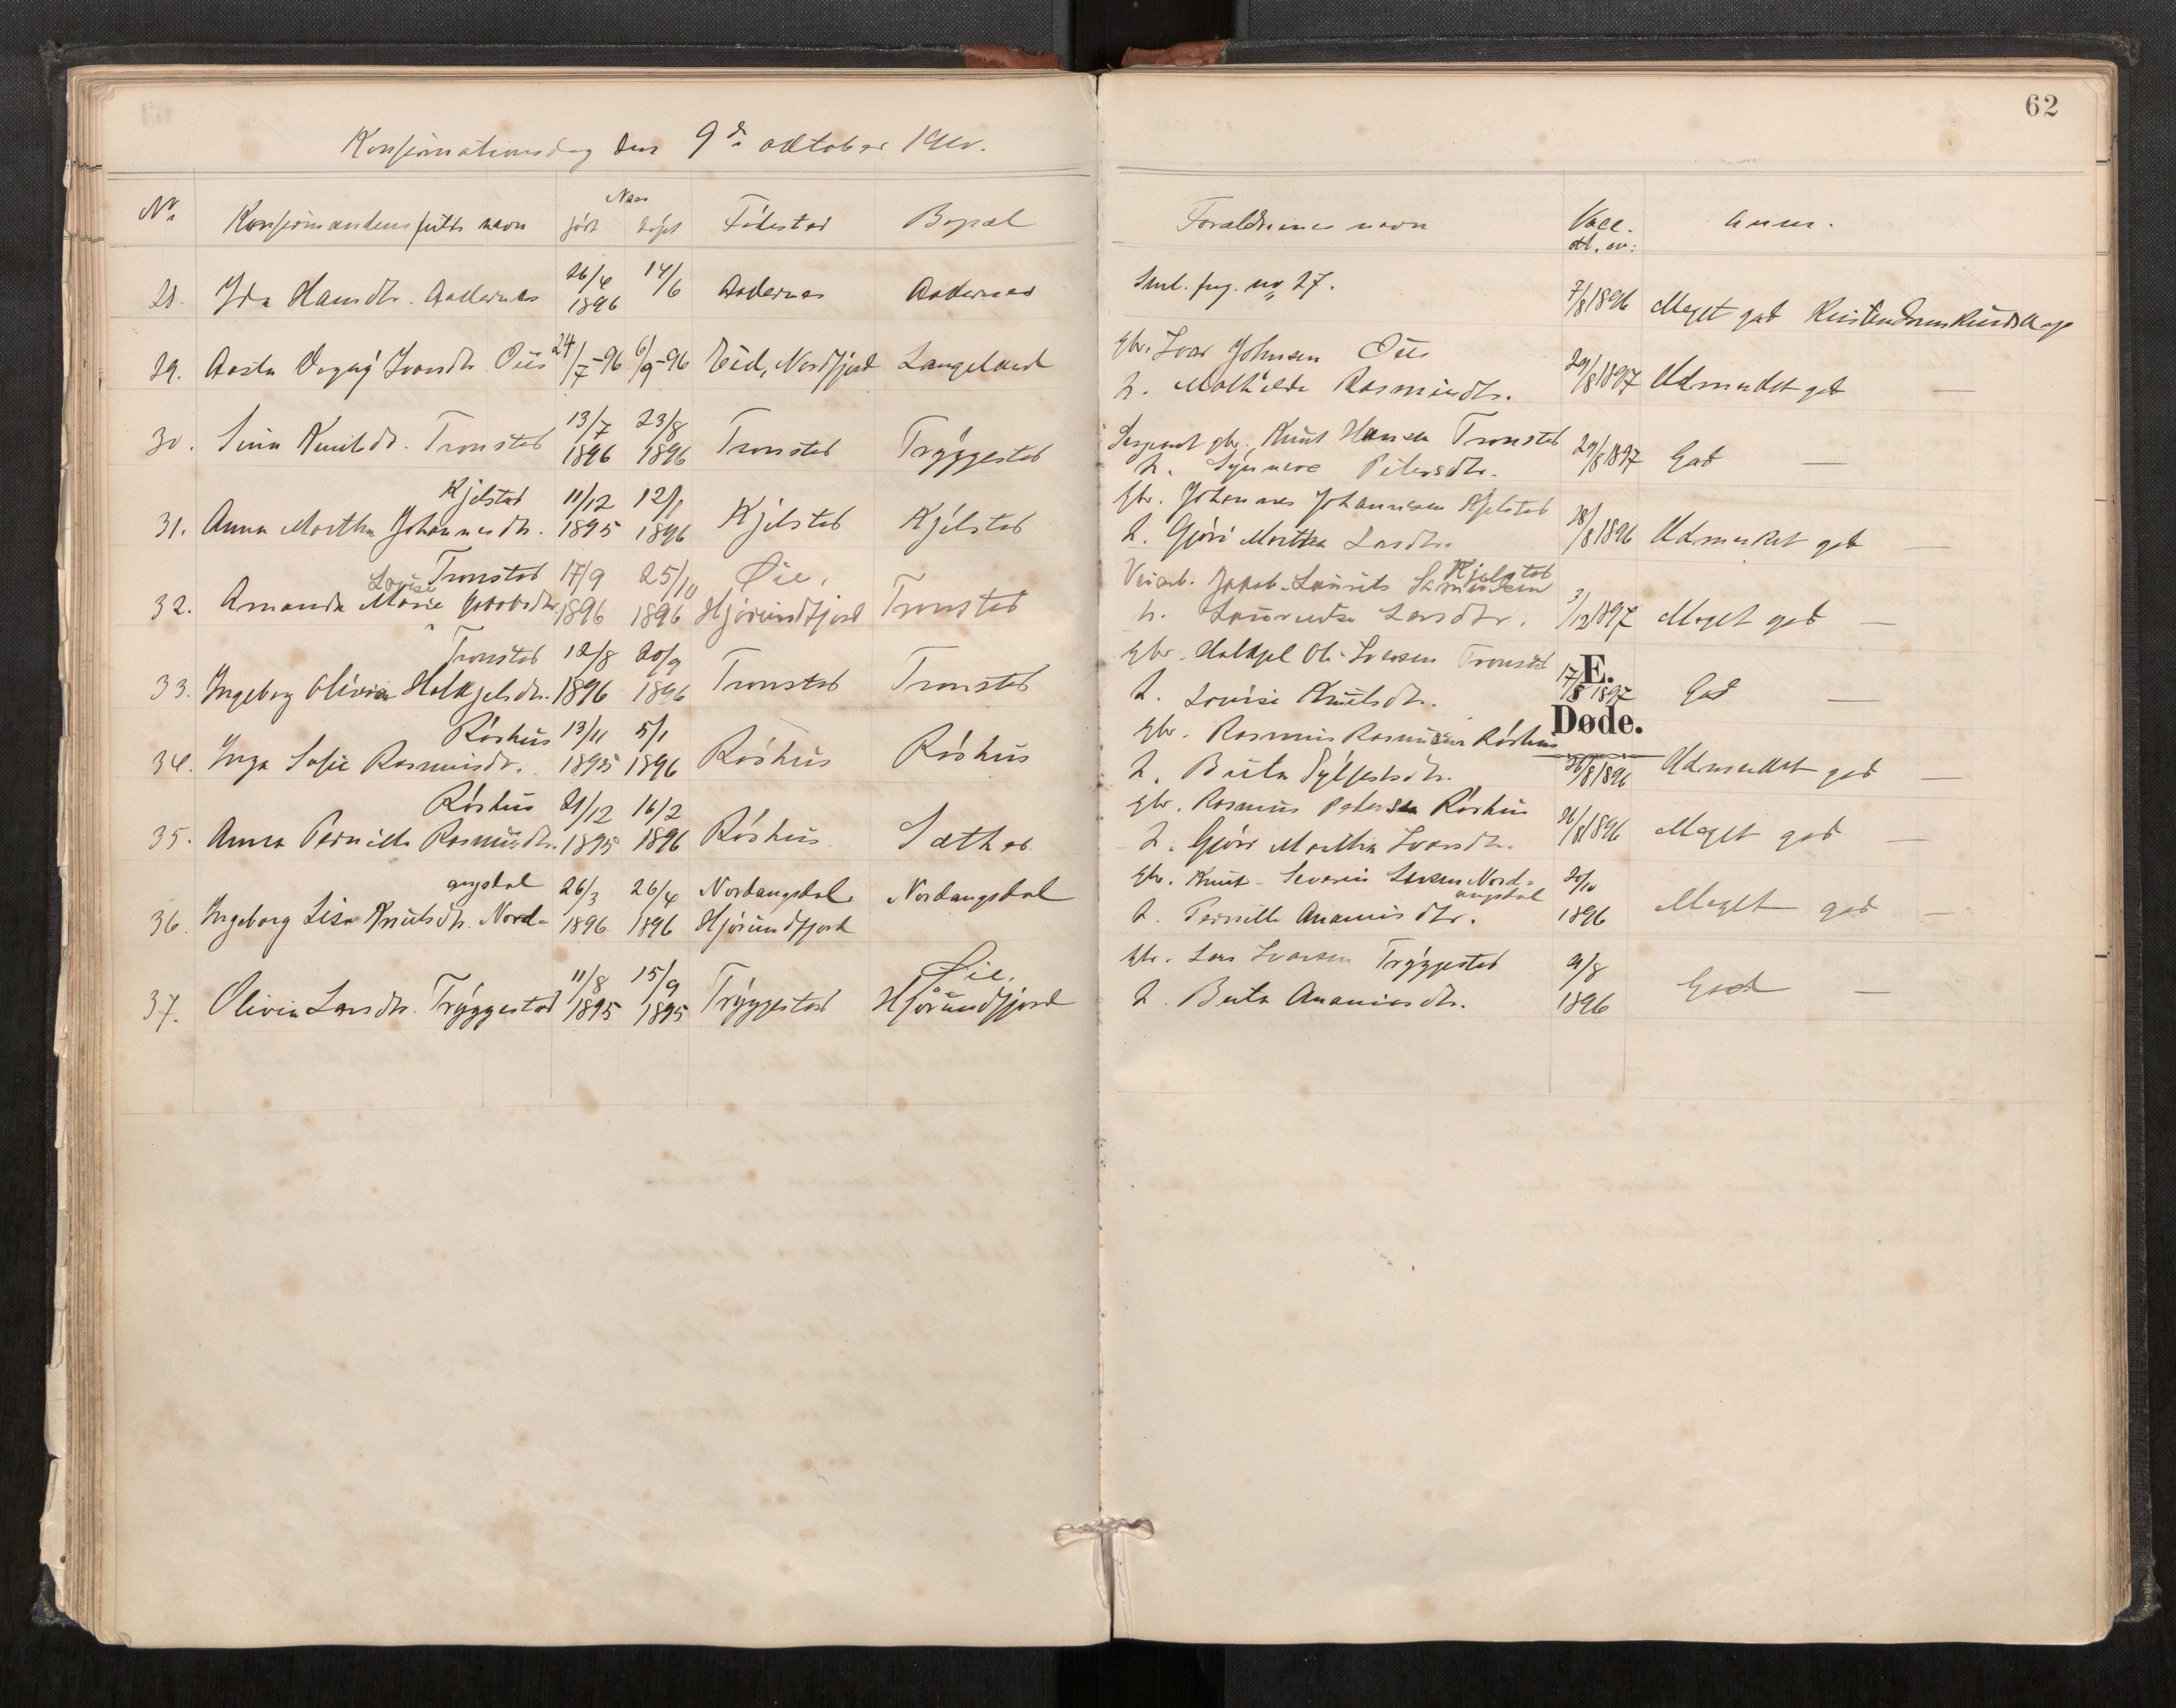 62
Konfirmationsdag den 9de oktober 1910.
No Konfirmandens fulde navn Naar født døpt Fødested Bopæl Forældrenes navn Vacc. att. av: Anm.
28. Ida Hansdtr. Aadernes 26/4 1896 14/6 Aadernes Aadernes Sml. fng. no 27. 7/8 1896 Meget god Kristendomskundskap
29. Aasta Dagny Ivarsdtr. Øie 24/7-96 6/9-96 Eid, Nordfjord Langeland Gbr. Ivar Johnsen Øie
h. Mathilde Rasmusdtr. 29/8 1897 Udmerket god —
30. Sina Knutsdtr. Tronstad 13/7 1896 23/8 1896 Tronstad Tryggestad Sergeant gbr. Knut Hansen Tronstad
h. Synnøve Petersdtr. 29/8 1897 God —
31. Anna Martha Johannesdtr. Kjelstad 11/12 1895 12/1 1896 Kjelstad Kjelstad Gbr. Johannes Johannesen Kjelstad
h. Gjøri Martha Larsdtr. 18/8 1896 Udmerket god —
32. Amanda Lovise Marie Jakobsdtr. Tronstad 17/9 1896 25/10 1896 Øie, Hjørundfjord Tronstad Veiarb. Jakob Laurits Kjelstad
h. Laurentse Larsdtr. 3/12 1897 Meget god —
33. Ingeborg Olivia Halkjelsdtr. Tronstad 12/8 1896 20/9 1896 Tronstad Tronstad Gbr. Halkjel Ole Iversen Tronstad
h. Lovise Knutsdtr. 17/8 1897 God —
E.
Døde.
34. Inga Sofie Rasmusdtr. Røshus 13/11 1895 5/1 1896 Røshus Røshus Gbr. Rasmus Rasmusen Røshus
h. Berta Sylfestsdtr. 26/8 1896 Udmerket god —
35. Anna Pernille Rasmusdtr. Røshus 21/12 1895 16/2 1896 Røshus Sæther Gbr. Rasmus Petersen Røshus
h. Gjøri Martha Ivarsdtr. 26/8 1896 Meget god —
36. Ingeborg Lisa Knutsdtr. Nord-angsdal 26/3 1896 26/4 1896 Nordangsdal Hjørundfjord Nordangsdal Gbr. Knut Severin Larsen Nord-angsdal
h. Pernille Ananiasdtr. 20/10 1896 Meget god —
37. Olivia Larsdtr. Tryggestad 11/8 1895 15/9 1895 Tryggestad Øie, Hjørundfjord Gbr. Lars Ivarsen Tryggestad
h. Berta Ananiasdtr. 9/8 1896 God —